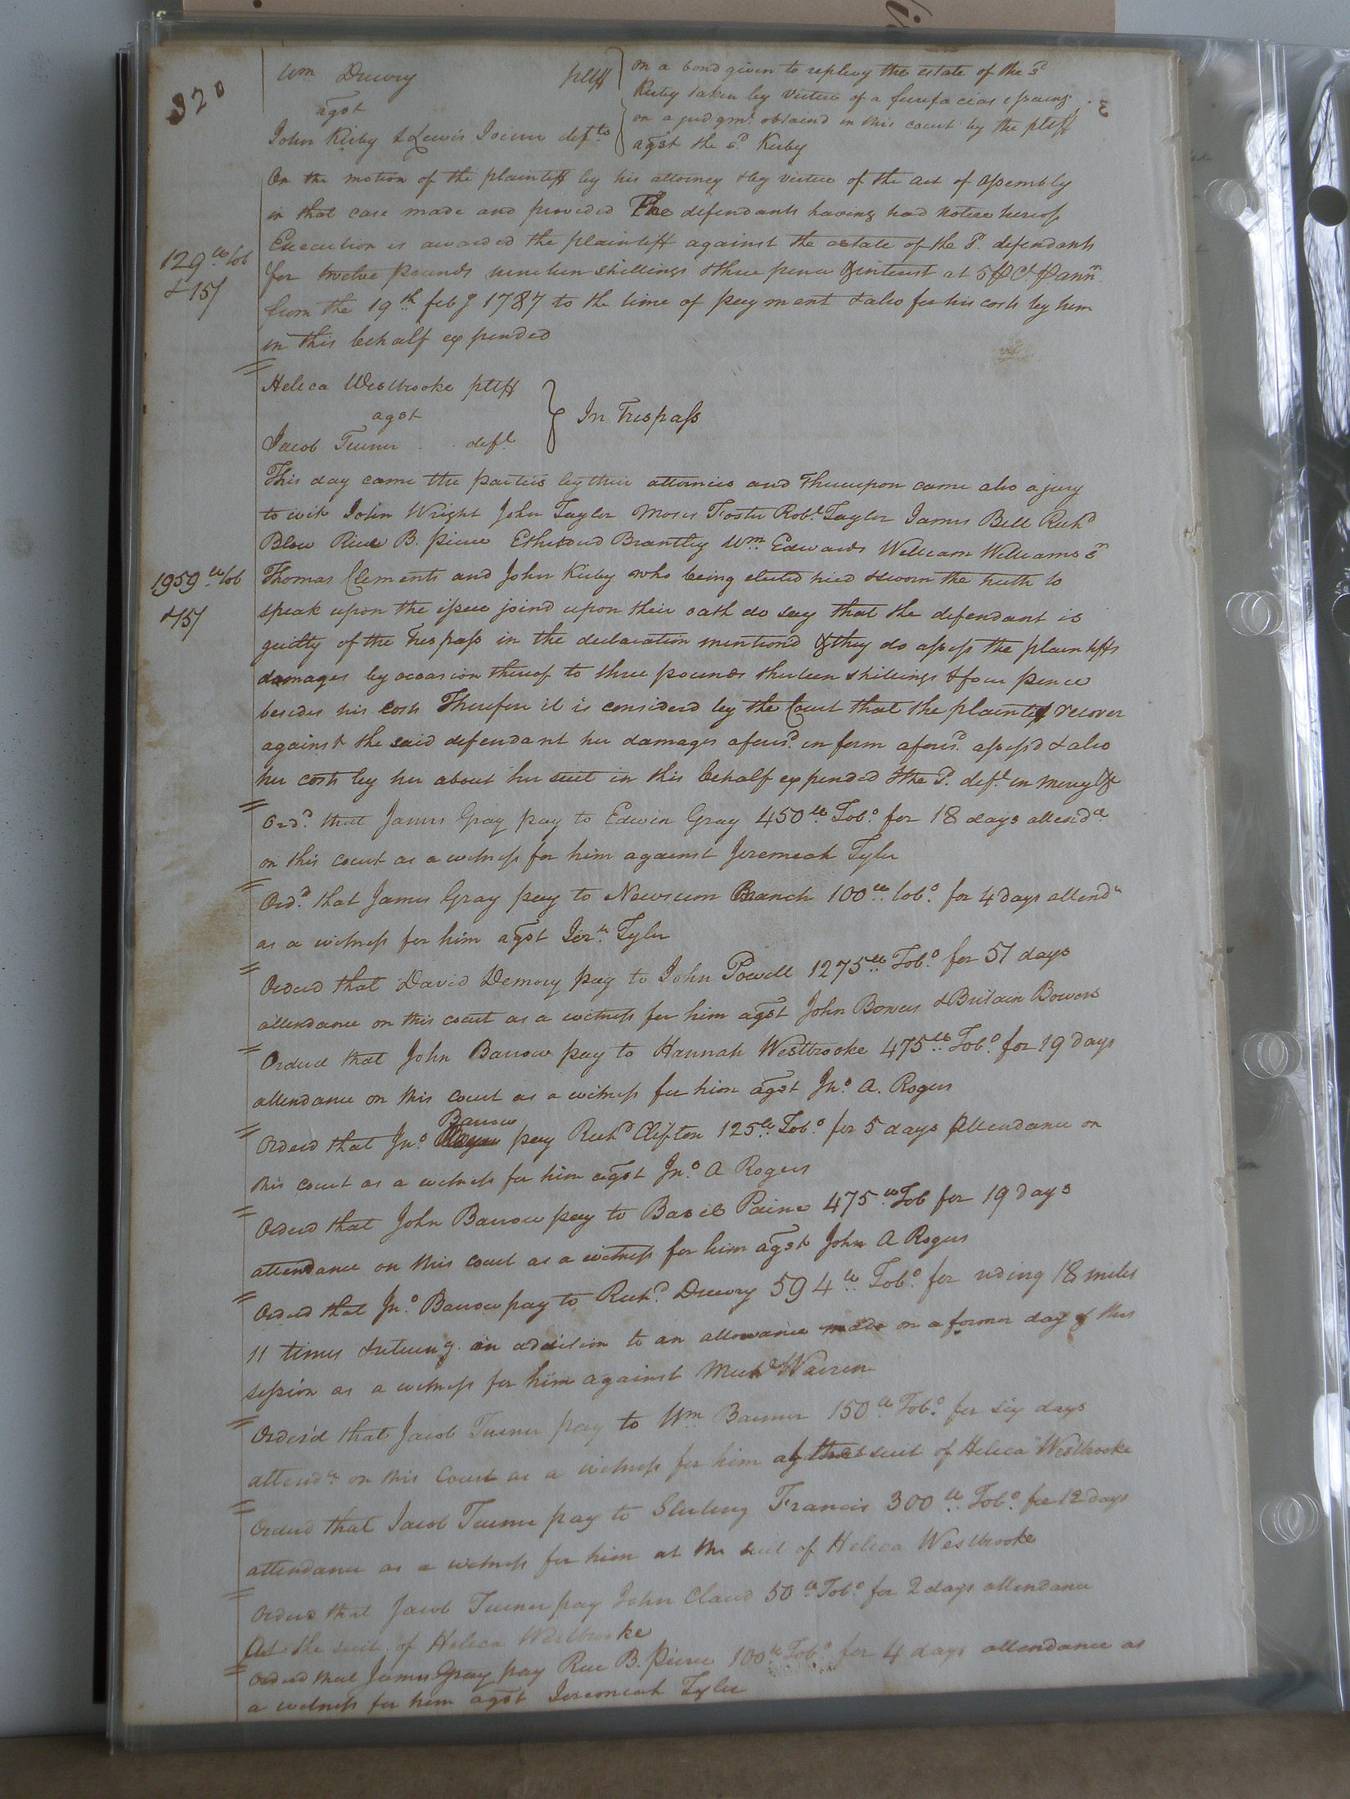 320
Wm Drewry pltff
agst
John Kirby & Lewis Joiner defts
on a bond given to replevy the estate of the sd
Kirby taken by virtue of a fierifacias issuing
on a judgmt. obtaind in this court by the pltff
agst the sd Kirby
On the motion of the plaintiff by his attorney & by virtue of the act of assembly
in that case made and provided The defendants having had notice hereof
Execution is awarded the plaintiff against the estate of the sd. defendants
129 lb tob
& 15/
for twelve pounds nineteen shillings & three pence & interest at 5 P Ct P ann
from the 19th feby 1787 to the time of payment & also for his costs by him
in this behalf expended
Heleca Westbrooke pltff
agst
Jacob Turner deft
In Trespass
This day came the parties by their attornies and thereupon came also a jury
to wit John Wright John Taylor Moses Foster Robt. Taylor James Bell Richd
Blow Rice B. pierce Etheldred Brantley Wm Edwards William Williams
1959 lb tob
& 15/
Thomas Clements and John Kirby who being elected tried & sworn the truth to
speak upon the issue joind upon their oath do say that the defendant is
guilty of the Trespass in the declaration mentiond & they do assess the plaintiffs
damages by occasion thereof to three pounds thirteen shillings & four pence
besides his costs Therefore it is considerd by the Court that the plaintiff recover
against the said defendant her damages aforesd. in form aforesd. assessd & also
her costs by her about her suit in this behalf expended & the sd. deft. in mercy &c
Ord. that James Gray pay to Edwin Gray 450 lb Tobo. for 18 days attendce
on this court as a witness for him against Jeremeah Tyler
Ord. that James Gray pay to Newsum Branch 100 lb tobo. for 4 days attend
as a witness for him agst Jerh. Tyler
Orderd that David Demory pay to John Powell 1275 lb Tobo. for 51 days
attendance on this court as a witness for him agst John Bowers & Britain Bowers
Orderd that John Barrow pay to Hannah Westbrooke 475 lb Tobo. for 19 days
attendance on this court as a witness for him agst Jno. A. Rogers
Barrow
Orderd that Jno. pay Richd Clifton 125 lb Tobo. for 5 days Attendance on
this court as a witness for him agst Jno. A Rogers
Orderd that John Barrow pay to Basil Paine 475 lb Tob for 19 days
attendance on this court as a witness for him agst John A Rogers
Orderd that Jno. Barrow pay to Richd. Drewry 594 lb Tobo. for riding 18 miles
11 times & returng. in addision to an allowance made on a former day of this
session as a witness for him against Michl Warren
Order'd that Jacob Turner pay to Wm 150 lb Tobo. for six days
attendce on this Court as a witness for him at the suit of Heleca Westbrooke
Orderd that Jacob Turner pay to Sterling Francis 300 lb Tobo. for 12 days
attendance as a witness for him at the suit of Heleca Westbrooke
Orderd that Jacob Turner pay John Claud 50 lb Tobo for 2 days attendance
At the suit of Heleca Westbrooke
Orderd that James Gray pay Rice B. Pierce 100 lb Tobo. for 4 days attendance as
a witness for him agst Jeremeah Tyler